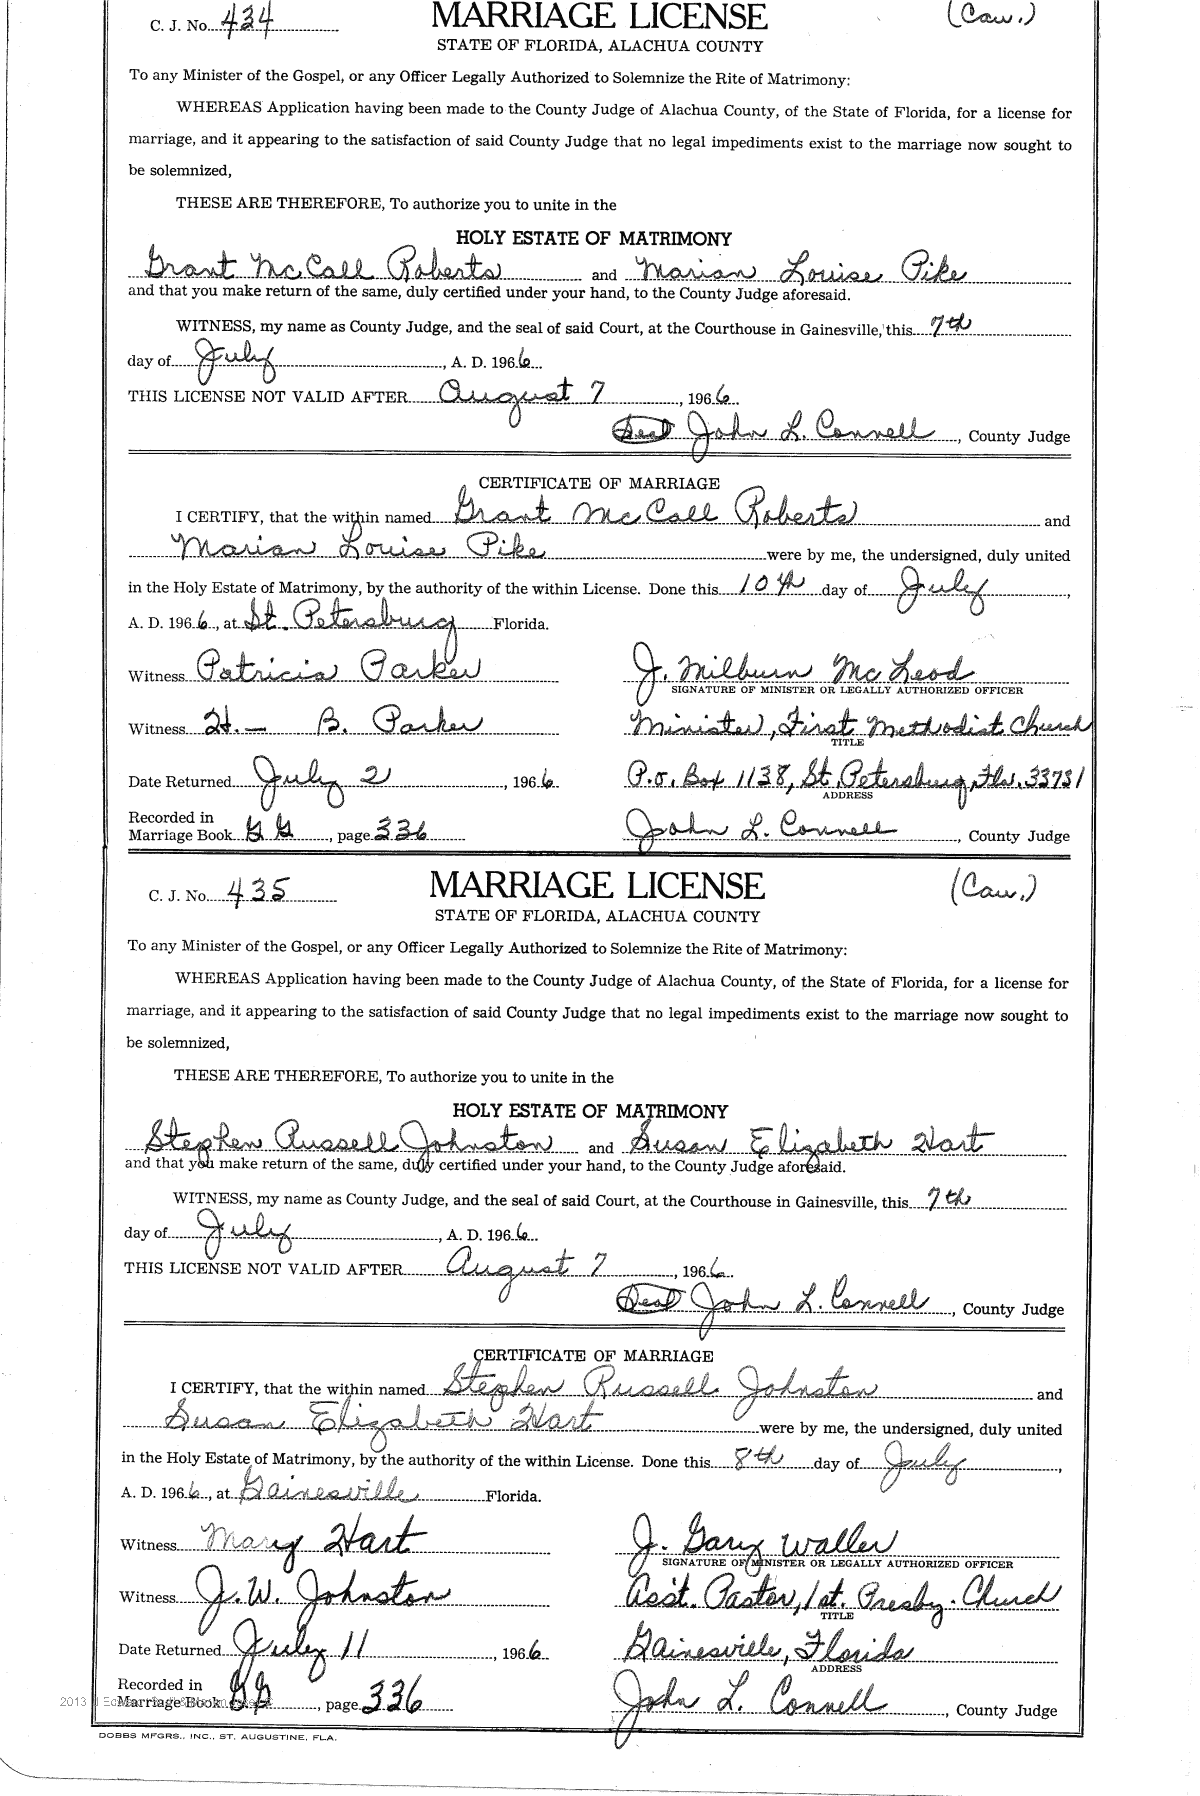 C. J. No. 434 MARRIAGE LICENSE (Cau.)
STATE OF FLORIDA, ALACHUA COUNTY
To any Minister of the Gospel, or any Officer Legally Authorized to Solemnize the Rite of Matrimony:
WHEREAS Application having been made to the County Judge of Alachua County, of the State of Florida, for a license for
marriage, and it appearing to the satisfaction of said County Judge that no legal impediments exist to the marriage now sought to
be solemnized,
THESE ARE THEREFORE, To authorize you to unite in the
HOLY ESTATE OF MATRIMONY
Grant McCall Roberts and Marian Louise Pike
and that you make return of the same, duly certified under your hand, to the County Judge aforesaid.
WITNESS, my name as County Judge, and the seal of said Court, at the Courthouse in Gainesville, this 7th
day of July, A. D. 1966
THIS LICENSE NOT VALID AFTER August 7, 1966
Seal John L. Connell, County Judge
CERTIFICATE OF MARRIAGE
I CERTIFY, that the within named Grant McCall Roberts and
Marian Louise Pike were by me, the undersigned, duly united
in the Holy Estate of Matrimony, by the authority of the within License. Done this 10th day of July,
A. D. 1966, at St. Petersburg Florida.
Witness Patricia Parker J. Milburn McLeod
SIGNATURE OF MINISTER OR LEGALLY AUTHORIZED OFFICER
Witness H.— B. Parker Minister, First Methodist Church
TITLE
Date Returned July 2, 1966 P.O. Box 1138, St. Petersburg, Fla. 33731
ADDRESS
Recorded in
Marriage Book GG, page 336 John L. Connell, County Judge
C. J. No. 435 MARRIAGE LICENSE (Cau.)
STATE OF FLORIDA, ALACHUA COUNTY
To any Minister of the Gospel, or any Officer Legally Authorized to Solemnize the Rite of Matrimony:
WHEREAS Application having been made to the County Judge of Alachua County, of the State of Florida, for a license for
marriage, and it appearing to the satisfaction of said County Judge that no legal impediments exist to the marriage now sought to
be solemnized,
THESE ARE THEREFORE, To authorize you to unite in the
HOLY ESTATE OF MATRIMONY
Stephen Russell Johnston and Susan Elizabeth Hart
and that you make return of the same, duly certified under your hand, to the County Judge aforesaid.
WITNESS, my name as County Judge, and the seal of said Court, at the Courthouse in Gainesville, this 7th
day of July, A. D. 1966
THIS LICENSE NOT VALID AFTER August 7, 1966
Seal John L. Connell, County Judge
CERTIFICATE OF MARRIAGE
I CERTIFY, that the within named Stephen Russell Johnston and
Susan Elizabeth Hart were by me, the undersigned, duly united
in the Holy Estate of Matrimony, by the authority of the within License. Done this 8th day of July,
A. D. 1966, at Gainesville Florida.
Witness Mary Hart J. Gary Waller
SIGNATURE OF MINISTER OR LEGALLY AUTHORIZED OFFICER
Witness J. W. Johnston Ass't. Pastor, 1st. Presby. Church
TITLE
Date Returned July 11, 1966 Gainesville, Florida
ADDRESS
Recorded in
2013 Marriage Book GG, page 336 John L. Connell, County Judge
DOBBS MFGRS., INC., ST. AUGUSTINE, FLA.